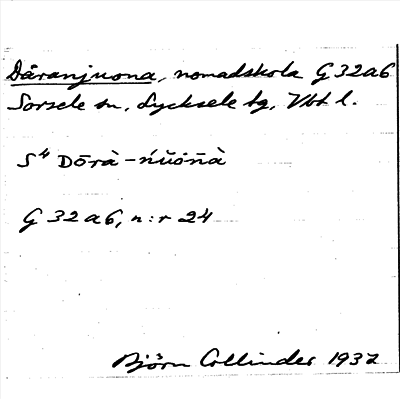 Dåranjuona, nomadskola G 32a6
Sorsele sn, Lycksele tg, Vbt l.
S⁴ Dōrà-ńŭōn̄à
G 32 a6, n:r 24
Björn Collinder 1937